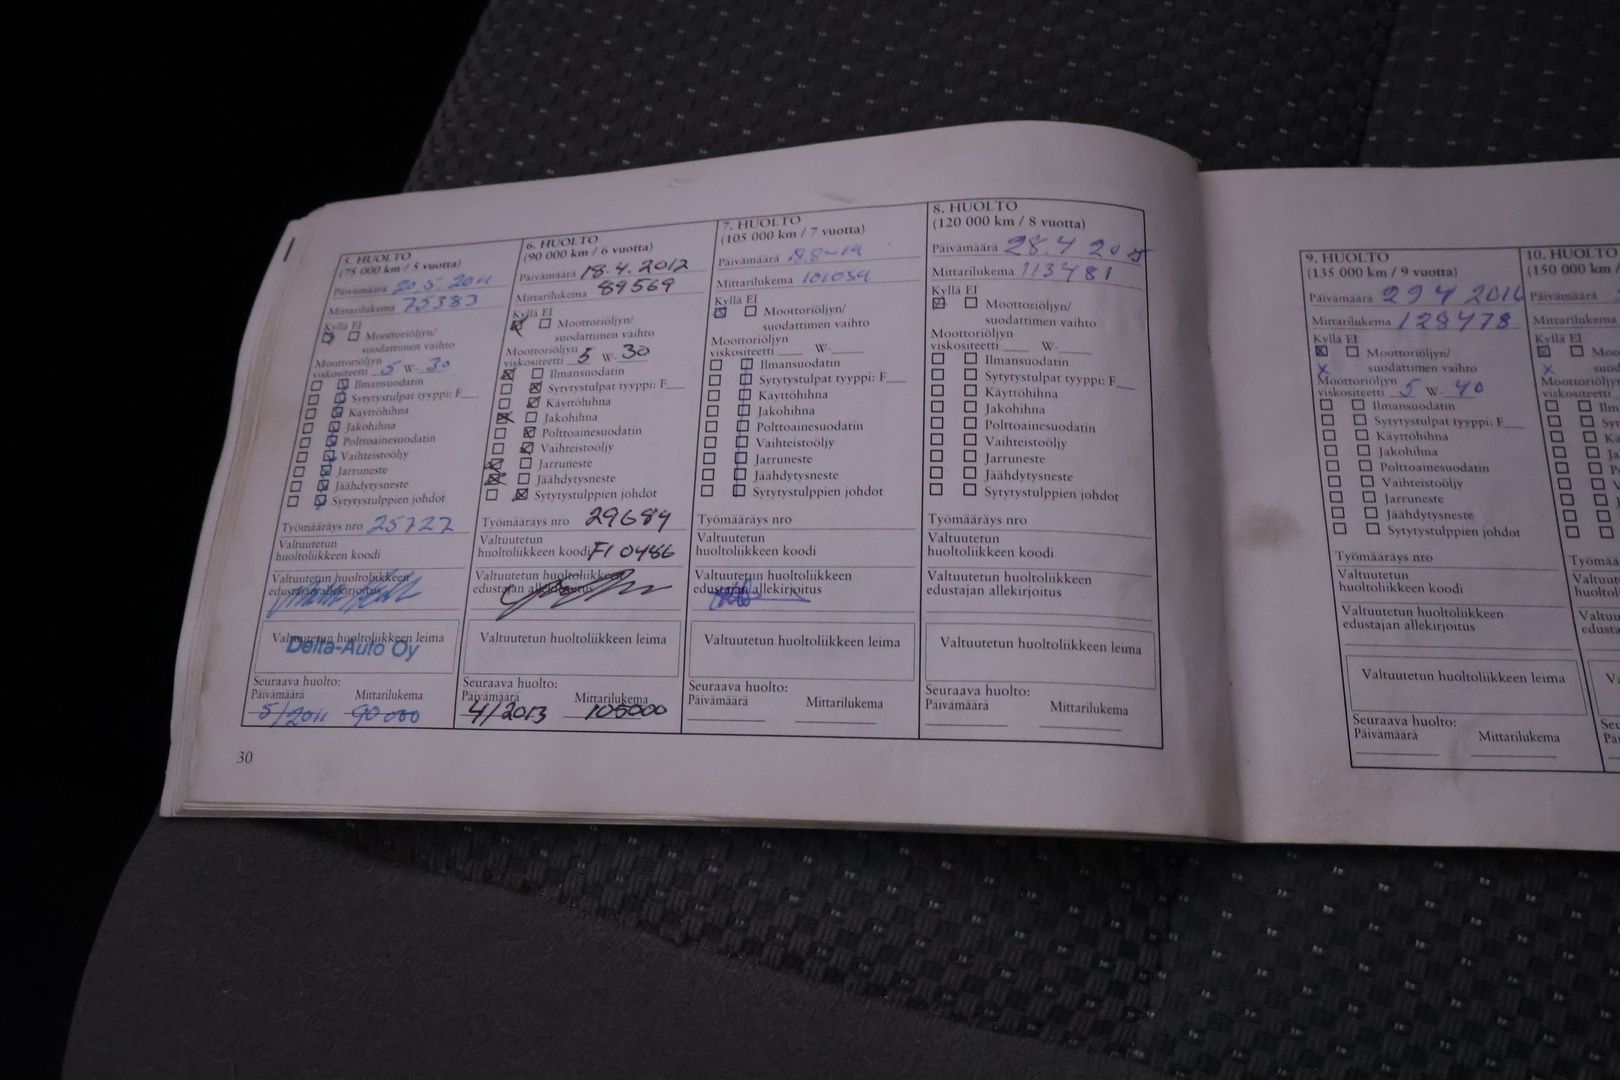 5. HUOLTO
(75 000 km / 5 vuotta)
Päivämäärä 20.5.2011
Mittarilukema 75383
Kyllä EI
Moottoriöljyn/
suodattimen vaihto
Moottoriöljyn
viskositeetti 5 W- 30
Ilmansuodatin
Sytytystulpat tyyppi: F
Käyttöhihna
Jakohihna
Polttoainesuodatin
Vaihteistoöljy
Jarruneste
Jäähdytysneste
Sytytystulppien johdot
Työmääräys nro 25727
Valtuutetun
huoltoliikkeen koodi
Valtuutetun huoltoliikkeen
edustajan allekirjoitus
Valtuutetun huoltoliikkeen leima
Delta-Auto Oy
Seuraava huolto:
Päivämäärä Mittarilukema
5/2011 90 000
6. HUOLTO
(90 000 km / 6 vuotta)
Päivämäärä 18.4.2012
Mittarilukema 89569
Kyllä EI
Moottoriöljyn/
suodattimen vaihto
Moottoriöljyn
viskositeetti 5 W- 30
Ilmansuodatin
Sytytystulpat tyyppi: F
Käyttöhihna
Jakohihna
Polttoainesuodatin
Vaihteistoöljy
Jarruneste
Jäähdytysneste
Sytytystulppien johdot
Työmääräys nro 29684
Valtuutetun
huoltoliikkeen koodi FI 0486
Valtuutetun huoltoliikkeen
edustajan allekirjoitus
Valtuutetun huoltoliikkeen leima
Seuraava huolto:
Päivämäärä Mittarilukema
4/2013 105000
7. HUOLTO
(105 000 km / 7 vuotta)
Päivämäärä
Mittarilukema 101034
Kyllä EI
Moottoriöljyn/
suodattimen vaihto
Moottoriöljyn
viskositeetti W-
Ilmansuodatin
Sytytystulpat tyyppi: F
Käyttöhihna
Jakohihna
Polttoainesuodatin
Vaihteistoöljy
Jarruneste
Jäähdytysneste
Sytytystulppien johdot
Työmääräys nro
Valtuutetun
huoltoliikkeen koodi
Valtuutetun huoltoliikkeen
edustajan allekirjoitus
Valtuutetun huoltoliikkeen leima
Seuraava huolto:
Päivämäärä Mittarilukema
8. HUOLTO
(120 000 km / 8 vuotta)
Päivämäärä 28.4 2015
Mittarilukema 113481
Kyllä EI
Moottoriöljyn/
suodattimen vaihto
Moottoriöljyn
viskositeetti W-
Ilmansuodatin
Sytytystulpat tyyppi: F
Käyttöhihna
Jakohihna
Polttoainesuodatin
Vaihteistoöljy
Jarruneste
Jäähdytysneste
Sytytystulppien johdot
Työmääräys nro
Valtuutetun
huoltoliikkeen koodi
Valtuutetun huoltoliikkeen
edustajan allekirjoitus
Valtuutetun huoltoliikkeen leima
Seuraava huolto:
Päivämäärä Mittarilukema
30
9. HUOLTO
(135 000 km / 9 vuotta)
Päivämäärä 29 4 2016
Mittarilukema 128478
Kyllä EI
Moottoriöljyn/
suodattimen vaihto
Moottoriöljyn
viskositeetti 5 W- 40
Ilmansuodatin
Sytytystulpat tyyppi: F
Käyttöhihna
Jakohihna
Polttoainesuodatin
Vaihteistoöljy
Jarruneste
Jäähdytysneste
Sytytystulppien johdot
Työmääräys nro
Valtuutetun
huoltoliikkeen koodi
Valtuutetun huoltoliikkeen
edustajan allekirjoitus
Valtuutetun huoltoliikkeen leima
Seuraava huolto:
Päivämäärä Mittarilukema
10. HUOLTO
(150 000 km /
Päivämäärä
Mittarilukema
Kyllä EI